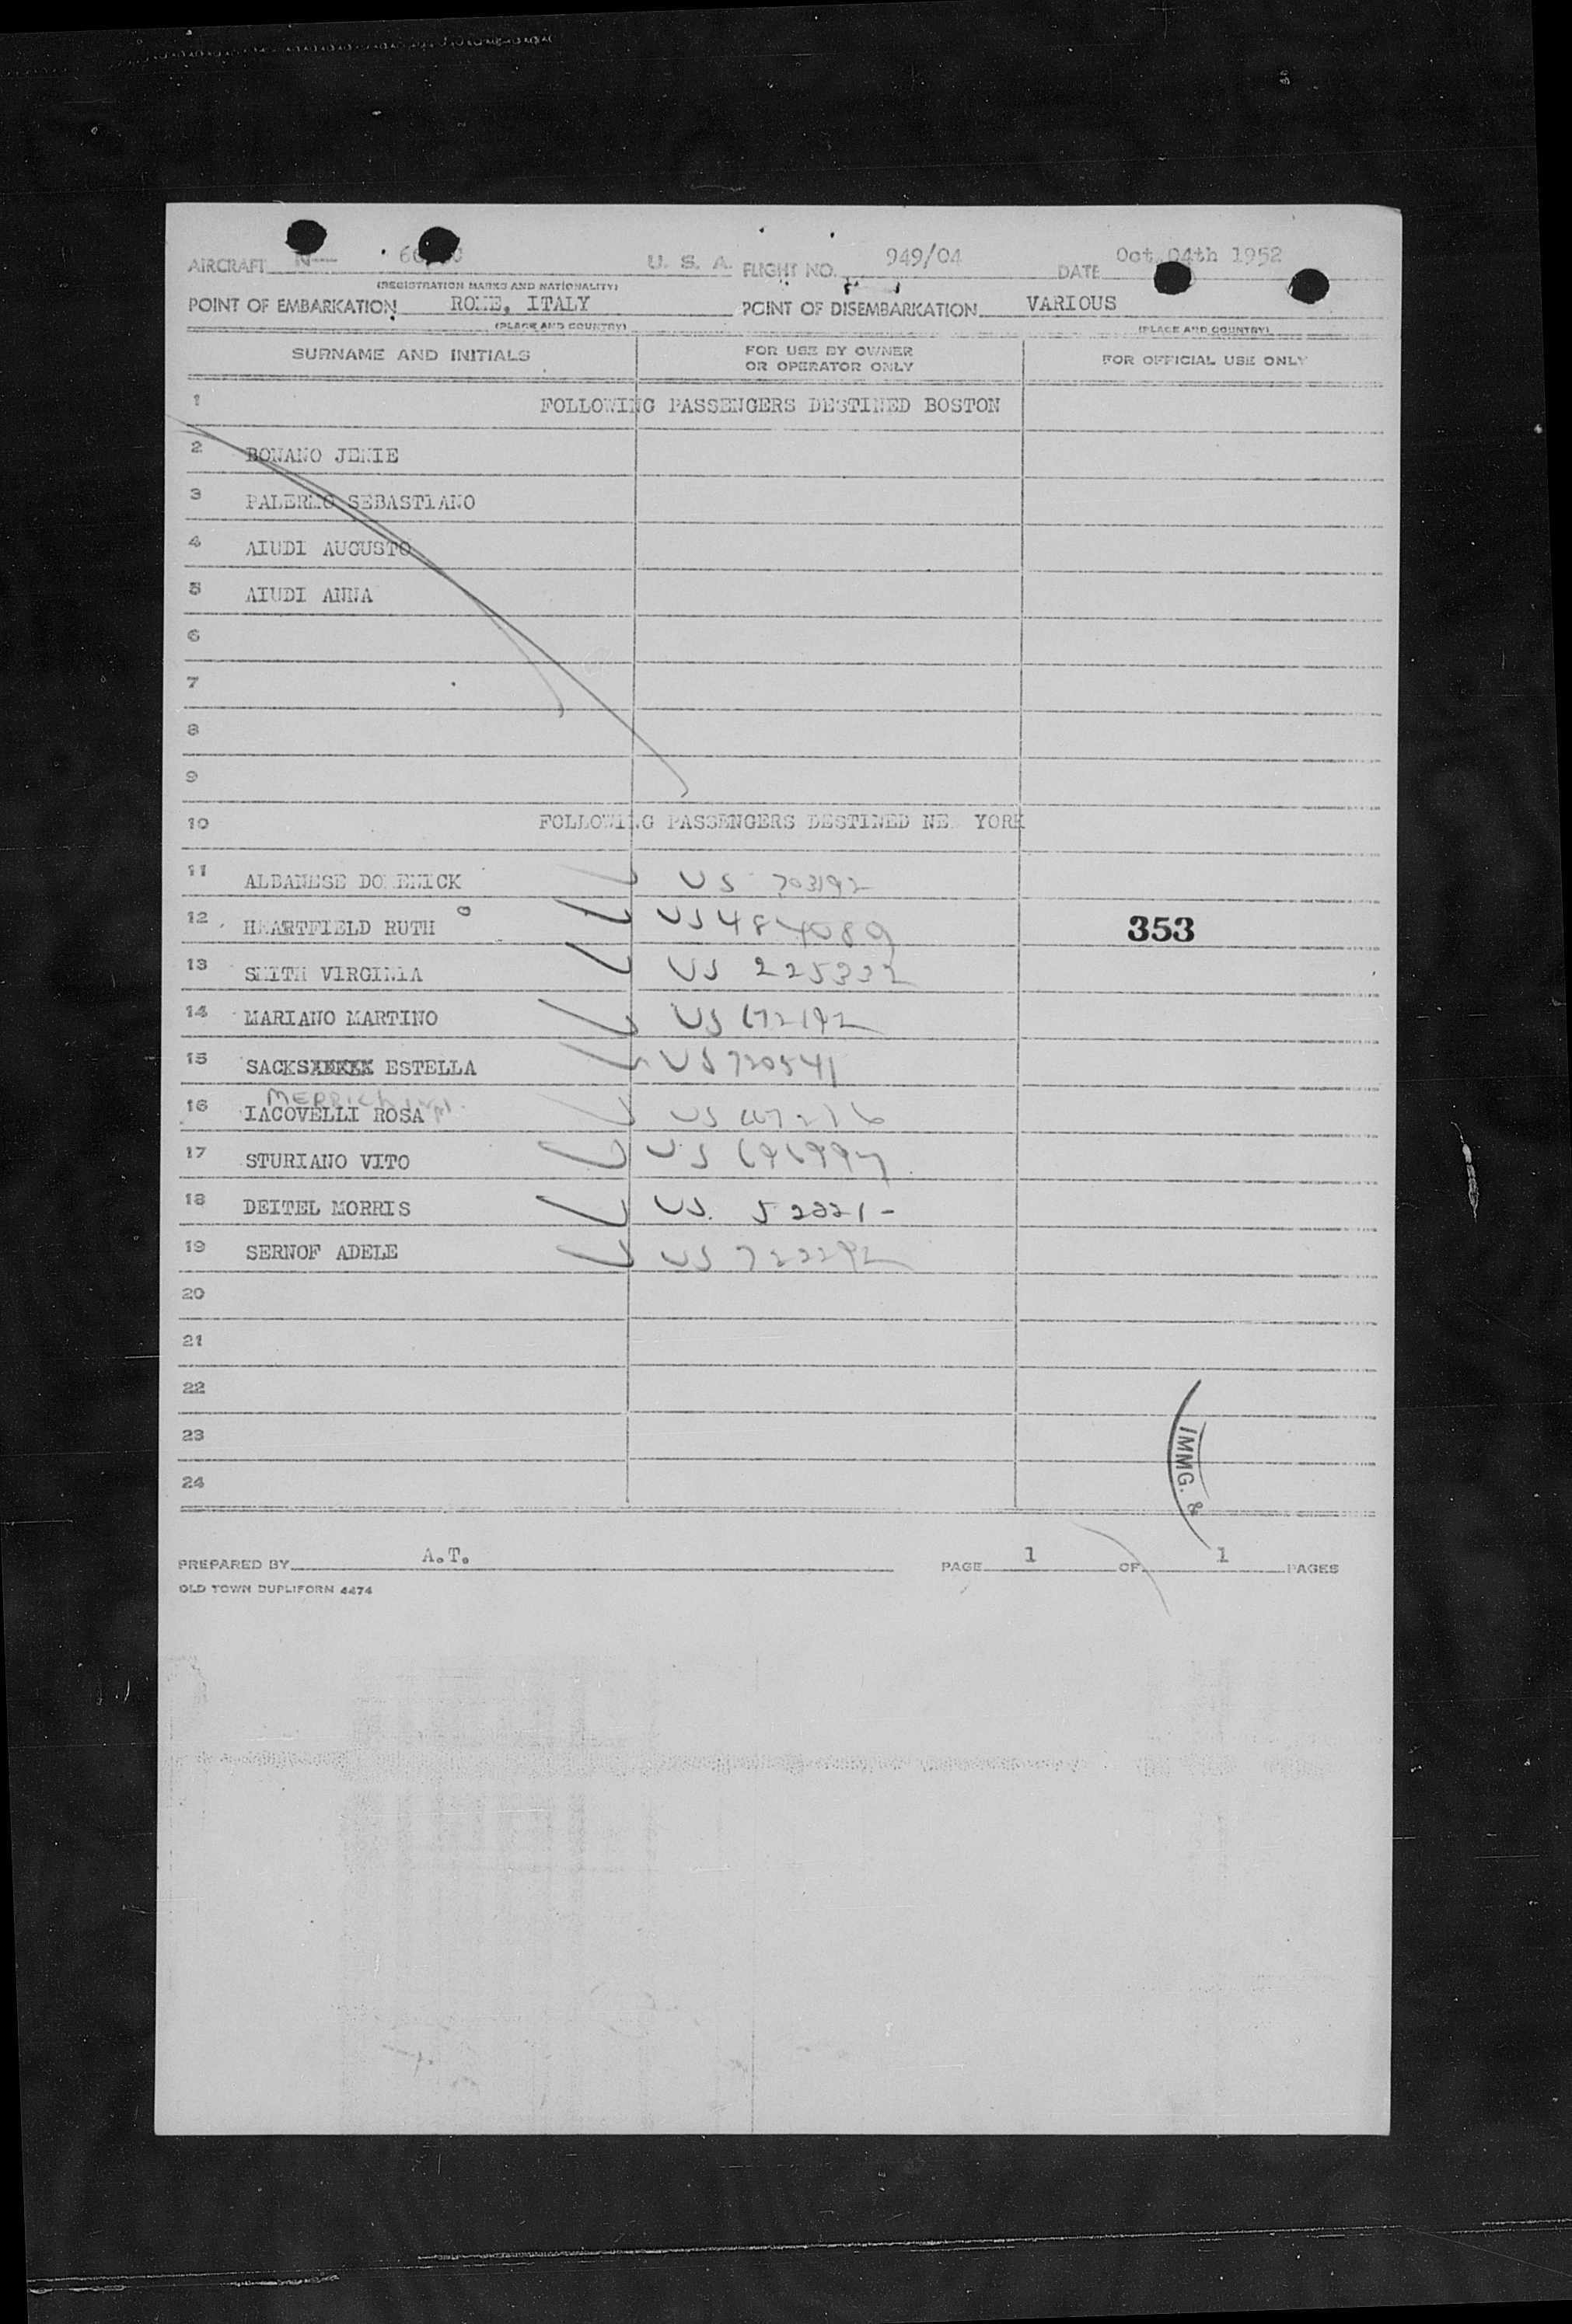 AIRCRAFT N— U. S. A. FLIGHT NO. 949/04 DATE Oct 04th 1952
(REGISTRATION MARKS AND NATIONALITY)
POINT OF EMBARKATION ROME, ITALY POINT OF DISEMBARKATION VARIOUS
(PLACE AND COUNTRY) (PLACE AND COUNTRY)
SURNAME AND INITIALS FOR USE BY OWNER OR OPERATOR ONLY FOR OFFICIAL USE ONLY
1 FOLLOWING PASSENGERS DESTINED BOSTON
2 BONANO JENIE
3 PALERMO SEBASTIANO
4 AIUDI AUGUSTO
5 AIUDI ANNA
6
7
8
9
10 FOLLOWING PASSENGERS DESTINED NE YORK
11 ALBANESE DOMENICK US 703192
12 HEARTFIELD RUTH US 484089 353
13 SMITH VIRGINIA US 225332
14 MARIANO MARTINO US 672192
15 SACKS ESTELLA US 720541
MERRICK
16 IACOVELLI ROSA US
17 STURIANO VITO US
18 DEITEL MORRIS US. 52321-
19 SERNOF ADELE US 722292
20
21
22
23
24
IMMG. &
PREPARED BY A.T. PAGE 1 OF 1 PAGES
OLD TOWN DUPLIFORM 4474